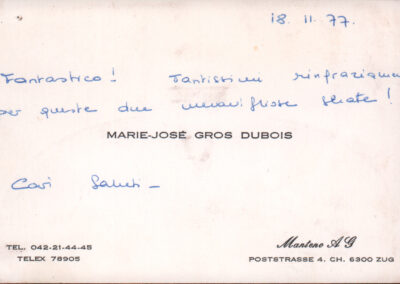 18. 11. 77.
Fantastico! Tantissimi
per queste due meravigliose serate!
MARIE-JOSÉ GROS DUBOIS
Cari Saluti -
TEL. 042-21-44-45
TELEX 78905
Manteno A G
POSTSTRASSE 4. CH. 6300 ZUG